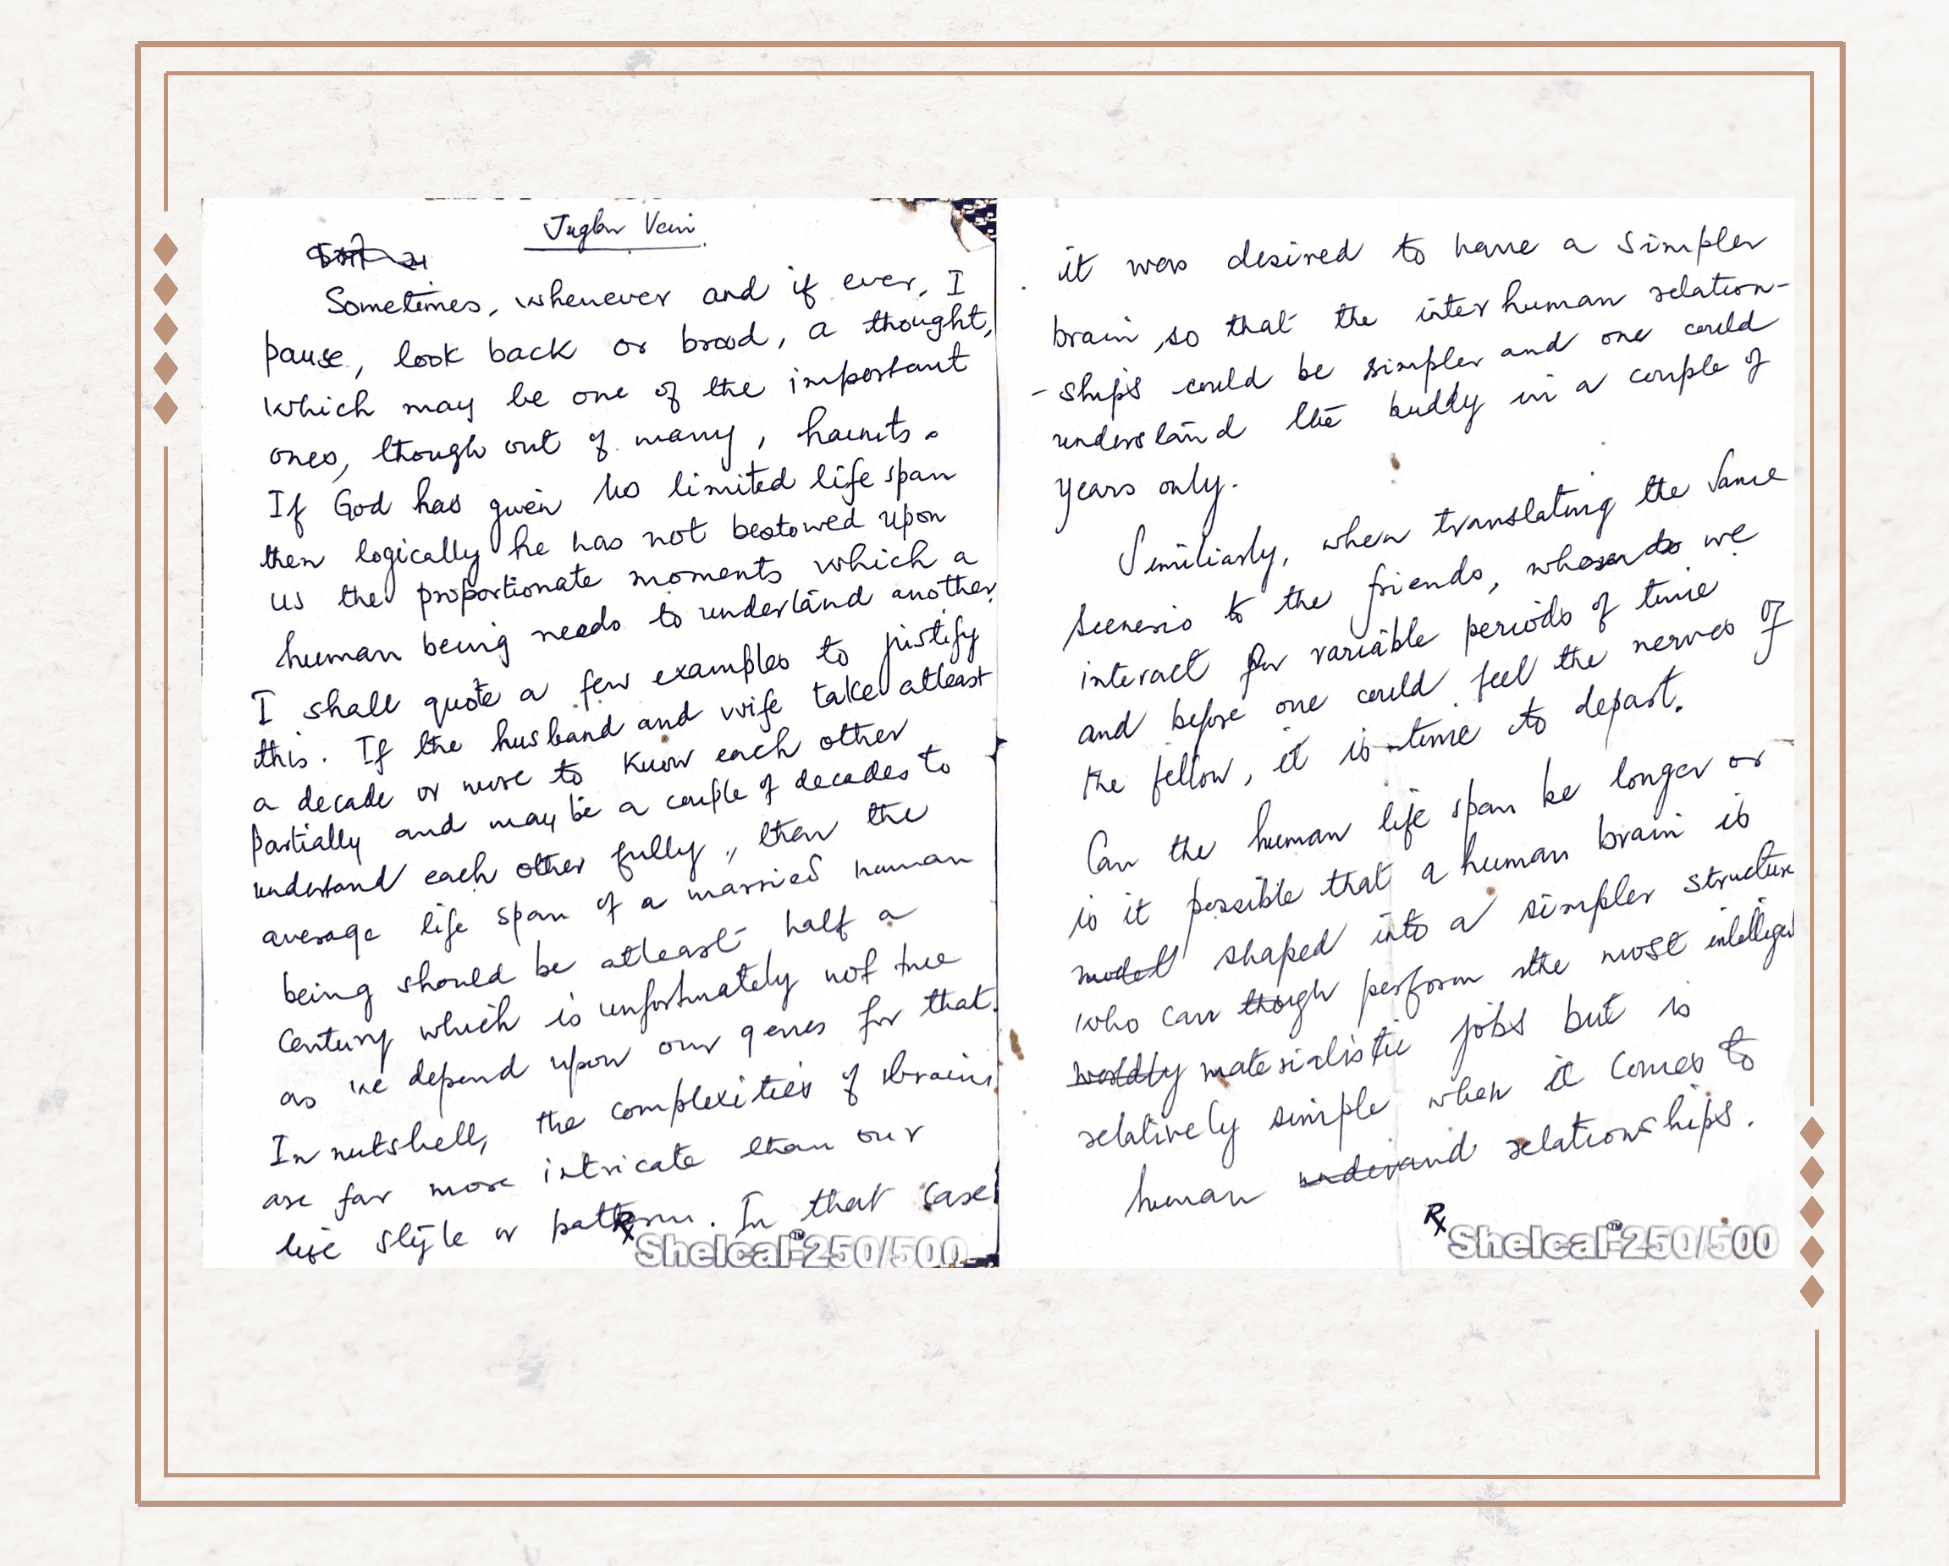 Juglar Vein
Sometimes, whenever and if ever, I
pause, look back or brood, a thought,
which may be one of the important
ones, though out of many, haunts.
If God has given us limited life span
then logically he has not bestowed upon
us the proportionate moments which a
human being needs to understand another
I shall quote a few examples to justify
this. If the husband and wife take atleast
a decade or more to know each other
partially and may be a couple of decades to
understand each other fully, then the
average life span of a married human
being should be atleast half a
century which is unfortunately not true
as we depend upon our genes for that.
In nutshell, the complexities of brains
are far more intricate than our
life style or pattern. In that case
Rx Shelcal™-250/500
it was desired to have a simpler
brain, so that the inter human relation-
-ships could be simpler and one could
understand the buddy in a couple of
years only.
Similiarly, when translating the same
scenerio to the friends, whom do we
interact for variable periods of time
and before one could feel the nerves of
the fellow, it is time to depart.
Can the human life span be longer or
is it possible that a human brain is
model shaped into a simpler structure
who can though perform the most intelligent
worldly materialistic jobs but is
relatively simple when it comes to
human relationships.
Rx Shelcal™-250/500